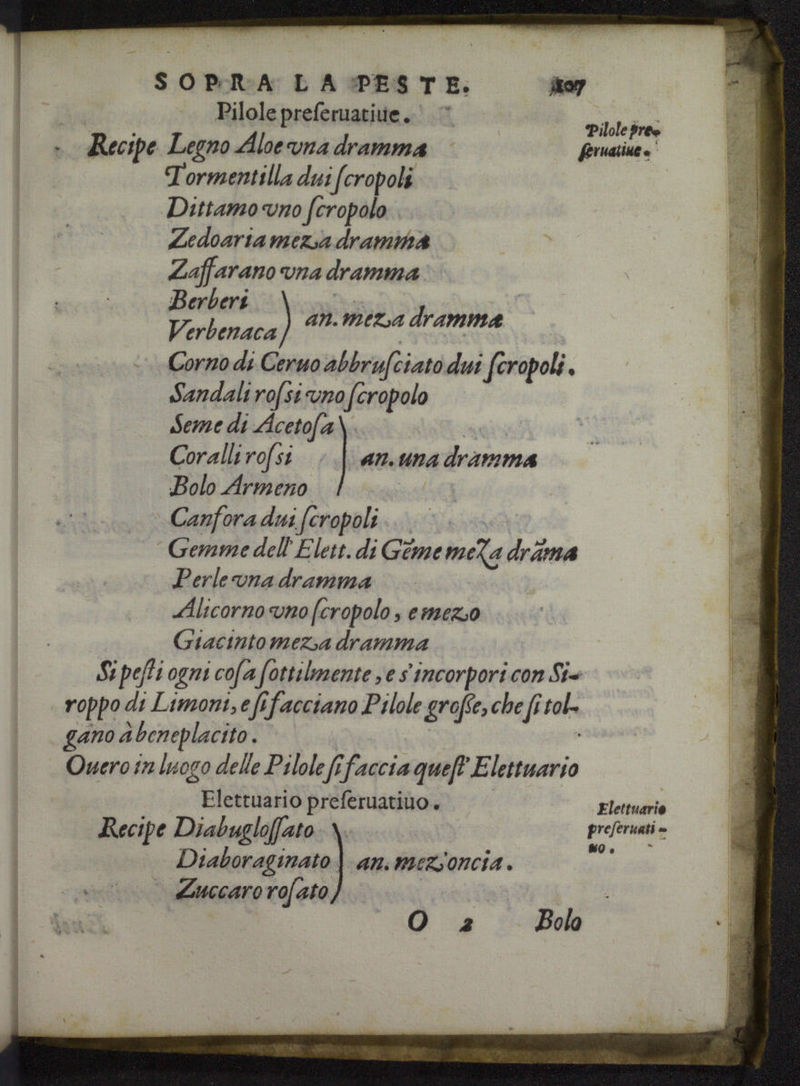 SOPRA LA PESTE. 107
Pilole preseruatiue.
Pilole pre-
seruatiue.
Recipe Legno Aloe vna dramma
Tormentilla dui scropoli
Dittamo vno scropolo
Zedoaria meza dramma
Zaffarano vna dramma
Berberi
Verbenaca } an. meza dramma
Corno di Ceruo abbrusciato dui scropoli.
Sandali rossi vno scropolo
Seme di Acetosa
Coralli rossi } an. una dramma
Bolo Armeno
Canfora dui scropoli
Gemme dell'Elett. di Gẽme meza drãma
Perle vna dramma
Alicorno vno scropolo, e mezo
Giacinto meza dramma
Si pesti ogni cosa sottilmente, e s'incorpori con Si-
roppo di Limoni, e si facciano Pilole grosse, che si tol-
gano à beneplacito.
Ouero in luogo delle Pilole si faccia quest'Elettuario
Elettuario preseruatiuo.
Elettuario
preseruati-
uo.
Recipe Diabuglossato
Diaboraginato } an. mez'oncia.
Zuccaro rosato
O 2 Bolo